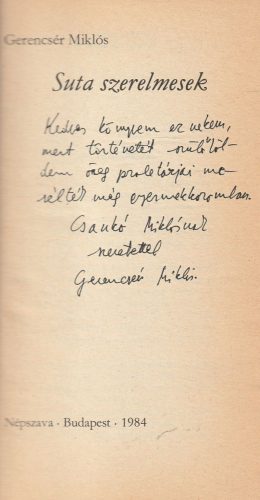 Gerencsér Miklós
Suta szerelmesek
Kedves könyvem ez nekem,
mert történetét szülőföl-
dem öreg proletárjai me-
sélték még gyermekkoromban.
Csankó Miklósnak
szeretettel
Gerencsér Miklós
Népszava · Budapest · 1984